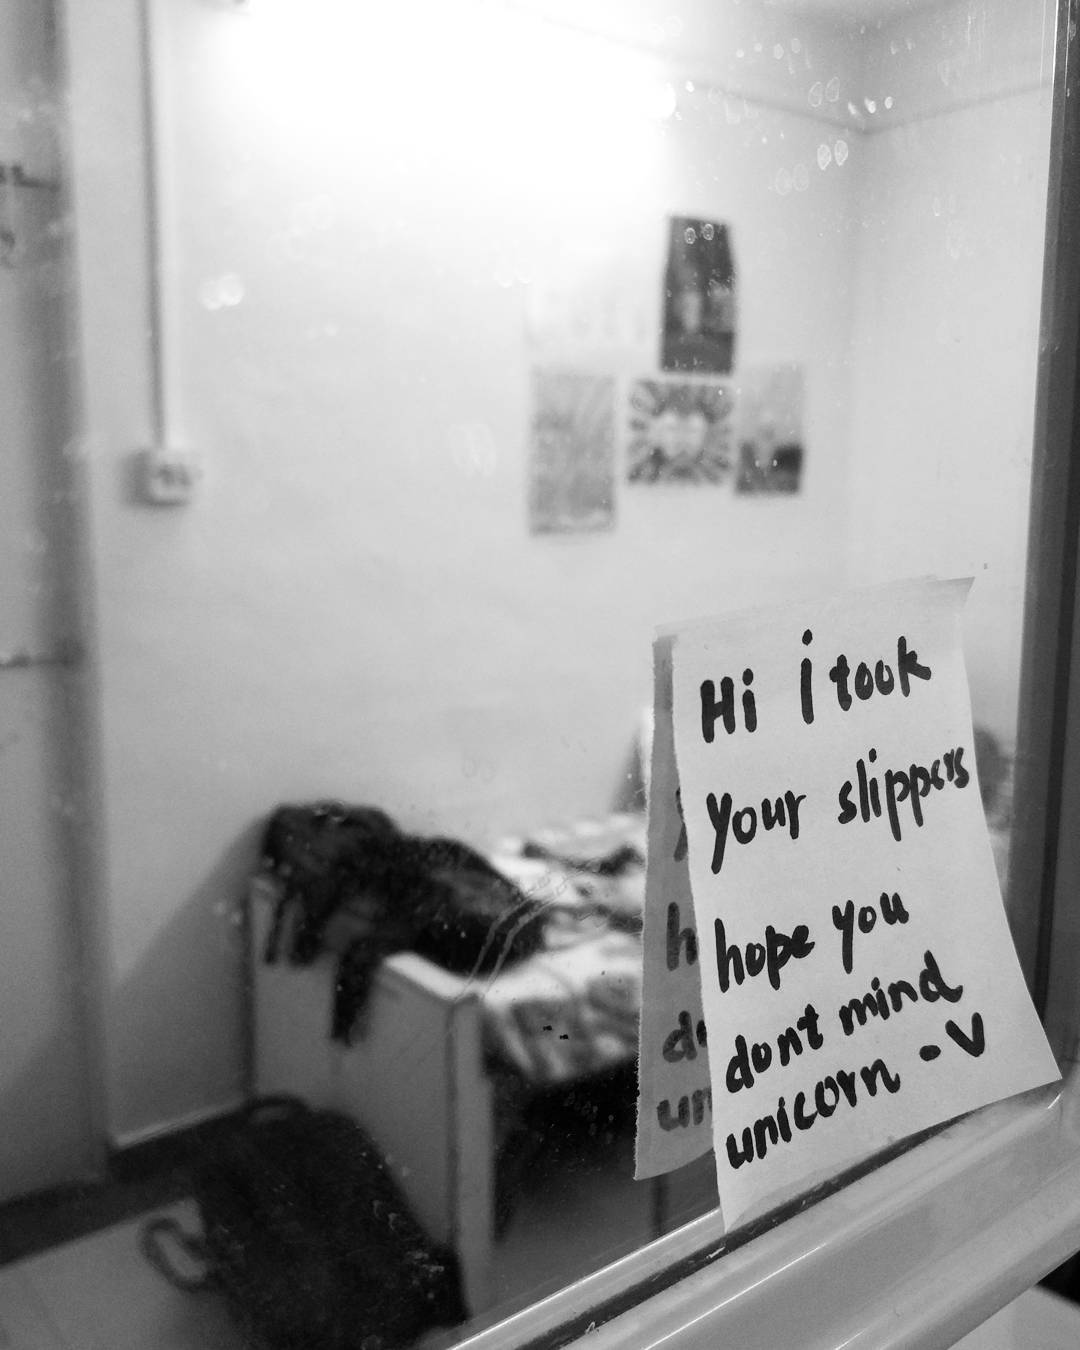 Hi i took
your slippers
hope you
dont mind
unicorn -V